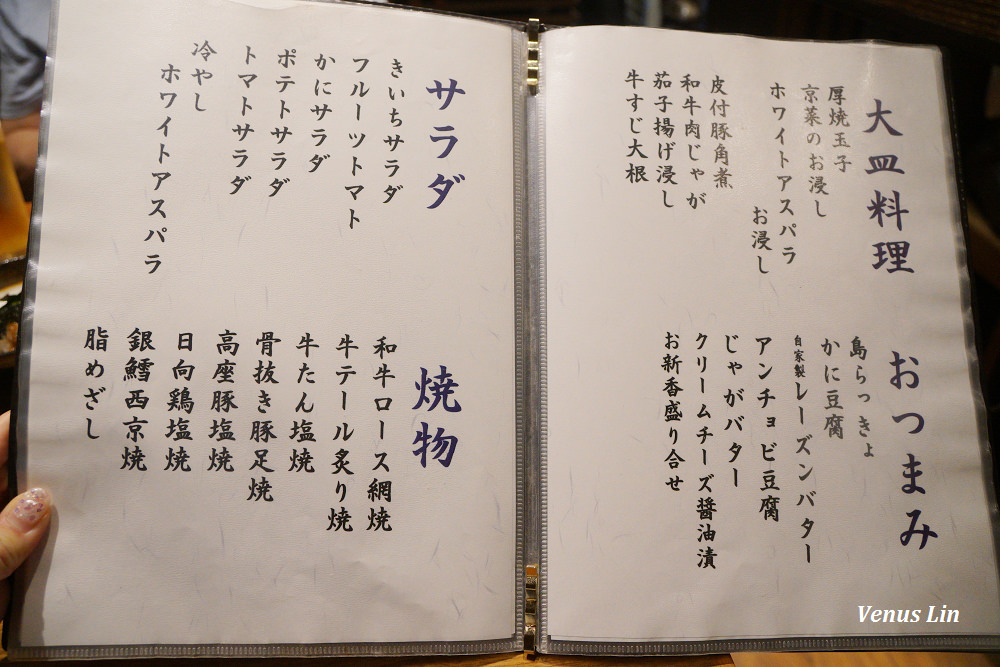 大皿料理
厚焼玉子
京菜のお浸し
ホワイトアスパラ
お浸し
皮付豚角煮
和牛肉じゃが
茄子揚げ浸し
牛すじ大根
おつまみ
島らっきょ
かに豆腐
自家製レーズンバター
アンチョビ豆腐
じゃがバター
クリームチーズ醤油漬
お新香盛り合せ
サラダ
きいちサラダ
フルーツトマト
かにサラダ
ポテトサラダ
トマトサラダ
冷やし
ホワイトアスパラ
焼物
和牛ロース網焼
牛テール炙り焼
牛たん塩焼
骨抜き豚足焼
高座豚塩焼
日向鶏塩焼
銀鱈西京焼
脂めざし
Venus Lin